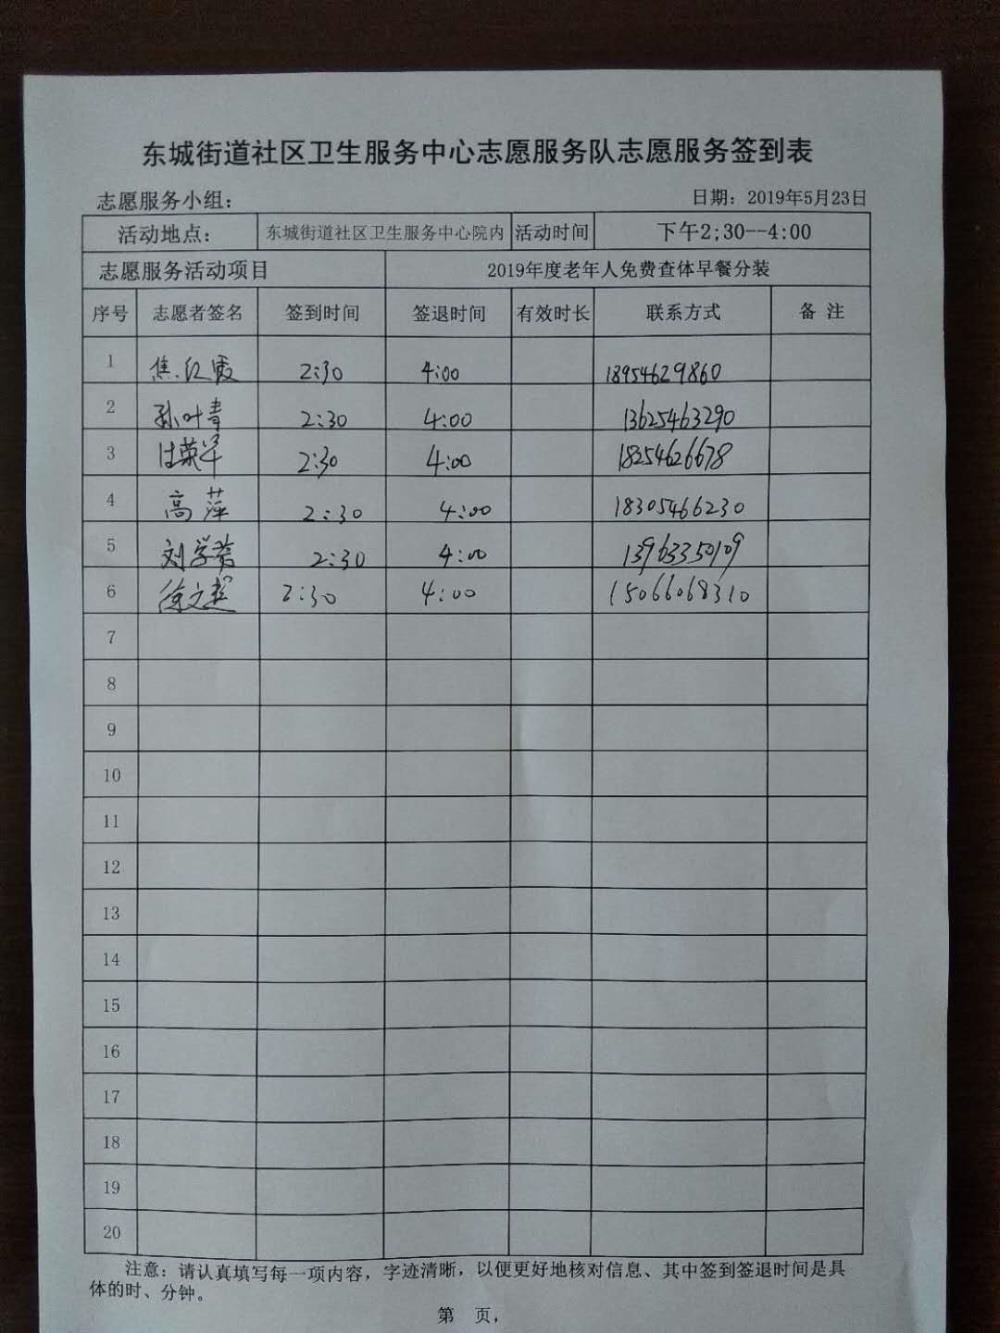 东城街道社区卫生服务中心志愿服务队志愿服务签到表
志愿服务小组： 日期：2019年5月23日
活动地点： 东城街道社区卫生服务中心院内 活动时间 下午2;30--4:00
志愿服务活动项目 2019年度老年人免费查体早餐分装
序号 志愿者签名 签到时间 签退时间 有效时长 联系方式 备 注
1 焦红霞 2:30 4:00 18954629860
2 孙叶青 2:30 4:00 13625463290
3 2:30 4:00 18254626678
4 高萍 2:30 4:00 18305466230
5 2:30 4:00 13963350109
6 徐文超 2:30 4:00 15066068310
7
8
9
10
11
12
13
14
15
16
17
18
19
20
注意：请认真填写每一项内容，字迹清晰，以便更好地核对信息、其中签到签退时间是具
体的时、分钟。
第 页，